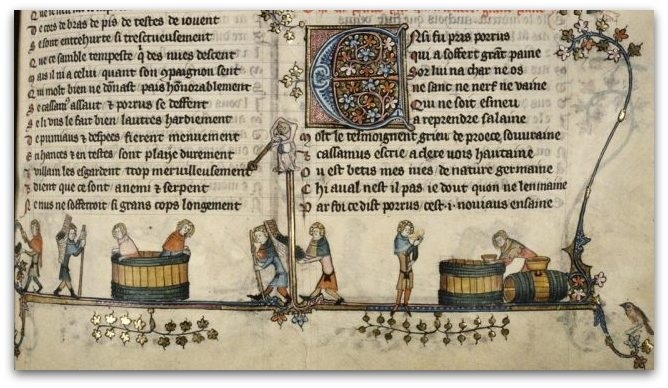 De cors de bras de pis de testes de iouent
Se sont entehurte si trescrueusement
Que ce samble tempeste q̄ des nues descent
Mais il ni a celui quant son ꝯpaignon sent
Qui molt bien ne dōnast pais hōnorablement
Se cassamꝰ assaut et porrus se deffent
Se li vns le fait bien lautres hardiement
De pumiaus et despees fierent menuement
En hances et en testes sont plaije durement
villain les esgardent trop merueilleusement
dient que ce sont anemi et serpent
nus ne sofferroit si grans cops longement
Ensi fu pris porrus
qui a soffert grāt paine
Sor lui na char ne os
ne sanc ne nerf ne vaine
Qui ne soit esmeu
a reprendre salaine
Molt le tesmoignent grieu de proece souuraine
Cassamus escrie a clere vois hautaine
Ou est betis mes nies de nature germaine
Chi aual nest il pas ie dout quon ne lenmaine
Par foi ce dist porrus cest ·i· nouiaus ensaine